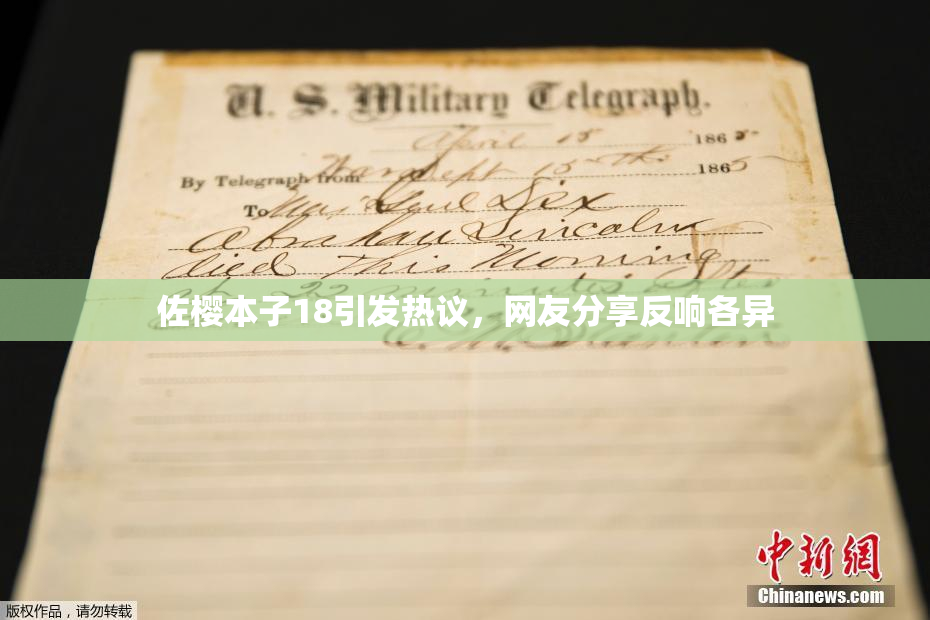 U. S. Military Telegraph.
April 15 1865
By Telegraph from War Dept 15th 1865
To Maj Genl Dix
Abraham Lincoln
died This Morning
at 22 minutes after
佐樱本子18引发热议，网友分享反响各异
E. M. Stanton
中新网
Chinanews.com
版权作品，请勿转载